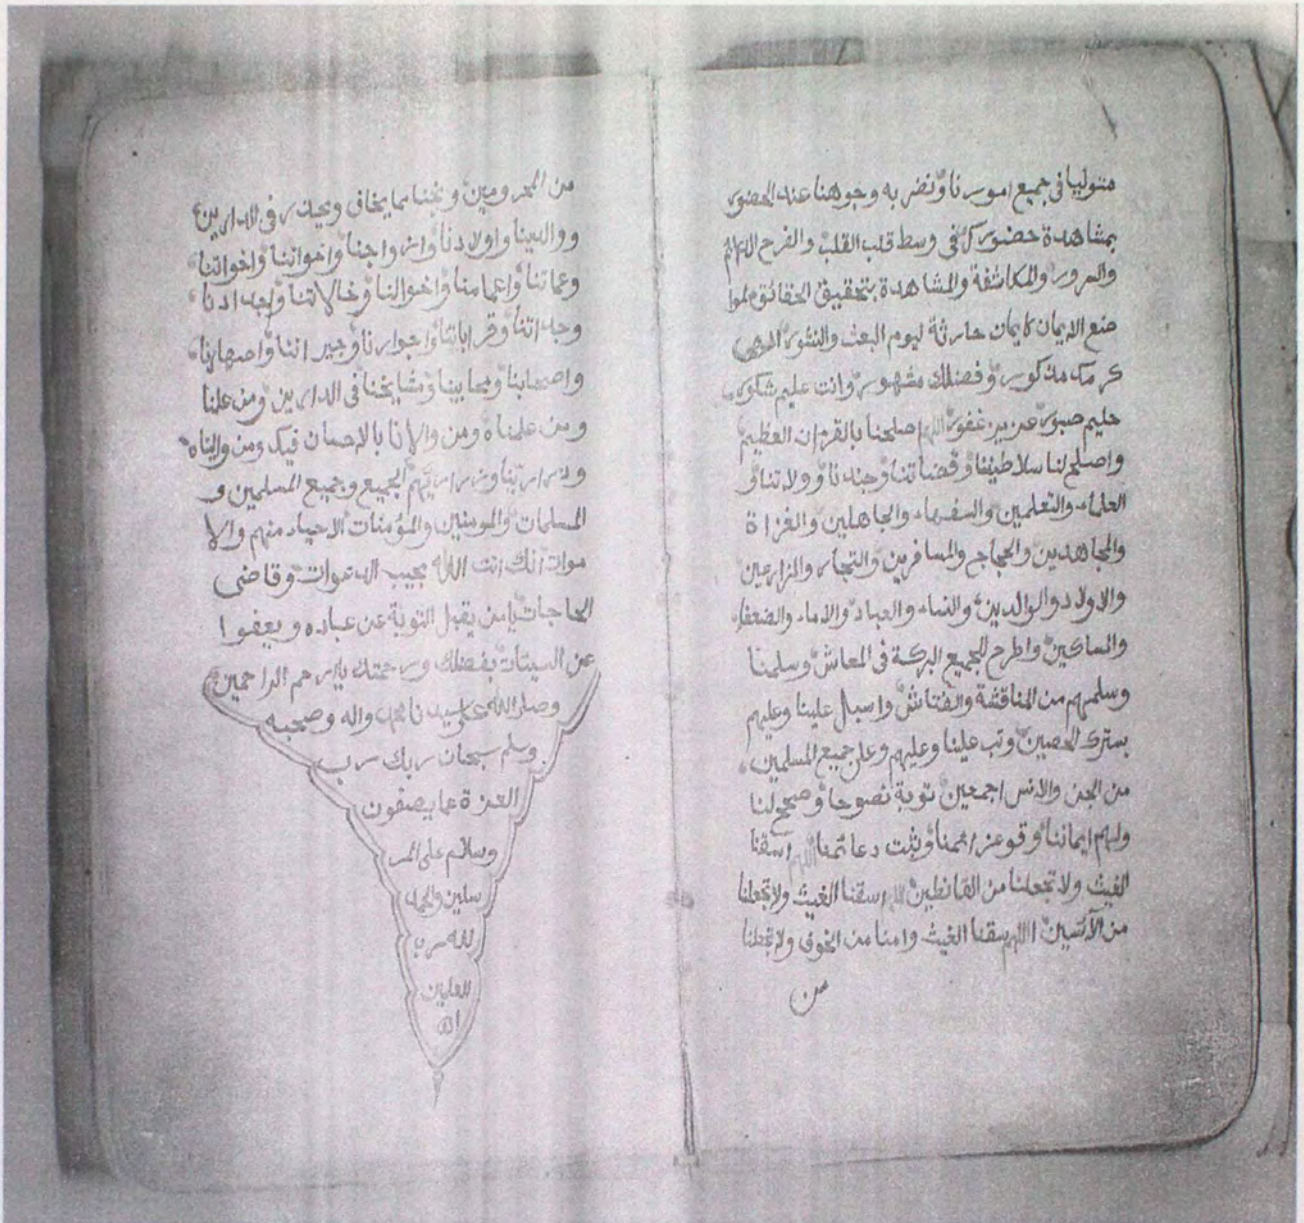 متوليا في جميع امورنا ونضر به وجوهنا عند الحضور
بمشاهدة حضورك في وسط قلب القلب والفرح الدائم
والسرور والمكاشفة والمشاهدة بتحقيق الحقائق
الايمان كايمان حارثة ليوم البعث والنشور الهى
كرمك مذكور وفضلك مشهور وانت عليم شكور
حليم صبور عزيز غفور اللهم اصلحنا بالقران العظيم
واصلح لنا سلاطيننا وقضاتنا وجندنا وولاتنا و
العلماء والتعلمين والسفهاء والجاهلين والغزاة
والمجاهدين والحجاج والمسافرين والتجار والمزارعين
والاولاد والوالدين والنساء والعباد والاماء والضعفاء
والمساكين واطرح للجميع البركة في المعاش وسلمنا
وسلمهم من المناقشة والفتاش واسبل علينا وعليهم
بسترك الحصين وتب علينا وعليهم وعلى جميع المسلمين
من الجن والانس اجمعين توبة نصوحا وصحح لنا
ولهم ايماننا وقو عزائمنا وثبت دعائمنا اللهم اسقنا
الغيث ولا تجعلنا من القانطين اللهم اسقنا الغيث ولا تجعلنا
من الآئسين اللهم اسقنا الغيث وامنا من الخوف ولا تجعلنا
من
من المحرومين ونجنا مما يخاف ويحذر في الدارين
ووالدينا واولادنا وازواجنا واخواننا واخواتنا
وعماتنا واعمامنا واخوالنا وخالاتنا واجدادنا
وجداتنا وقراباتنا واجوارنا وجيراننا واصهارنا
واصحابنا ومحابينا ومشايخنا في الدارين ومن علمنا
ومن علمناه ومن والانا بالاحسان فيك ومن واليناه
وذرارينا وذراريهم الجميع وجميع المسلمين و
المسلمات والمومنين والمؤمنات الاحياء منهم والا
موات انك انت الله مجيب الدعوات وقاضى
الحاجات يا من يقبل التوبة عن عباده ويعفوا
عن السيئات بفضلك ورحمتك يا ارحم الراحمين
وصلى الله على سيدنا محمد واله وصحبه
وسلم سبحان ربك رب
العزة عما يصفون
وسلام على المر
سلين والحمد
لله رب
العلمين